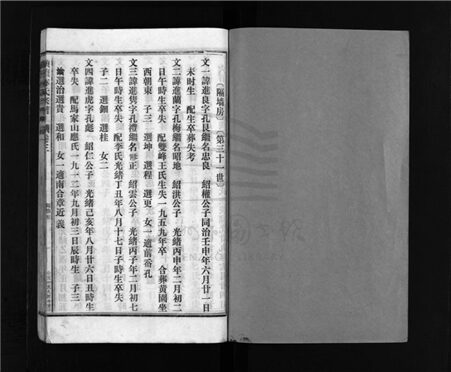 （隔墙房）　（第三十一世）
文一諱進良字孔良繼名忠良　紹權公子同治壬申年六月廿一日
未时生　配生卒葬失考
文二諱進蘭字孔梅繼名昭地　紹洪公子　光緒丙申年二月初二
日午時生卒失　配雙峰王氏生失一九五九年卒　合葬黄園坐
酉朝東　子三　選坤　選程　選更　女一適前嵛孔
文三諱進隽字孔　繼名　正　紹雲公子　光緒丙子年二月初七
日午時生卒失　配李氏光緒丁丑年八月十七日子時生卒失
子二　選鈿　選桂　女二
文四諱進虎字孔彪　紹仁公子　光緒己亥年八月廿六日丑時生
卒失　配馬家山應氏一九一二年九月初三日辰時生　子三
選治選貴　選和　女一適南合章近義